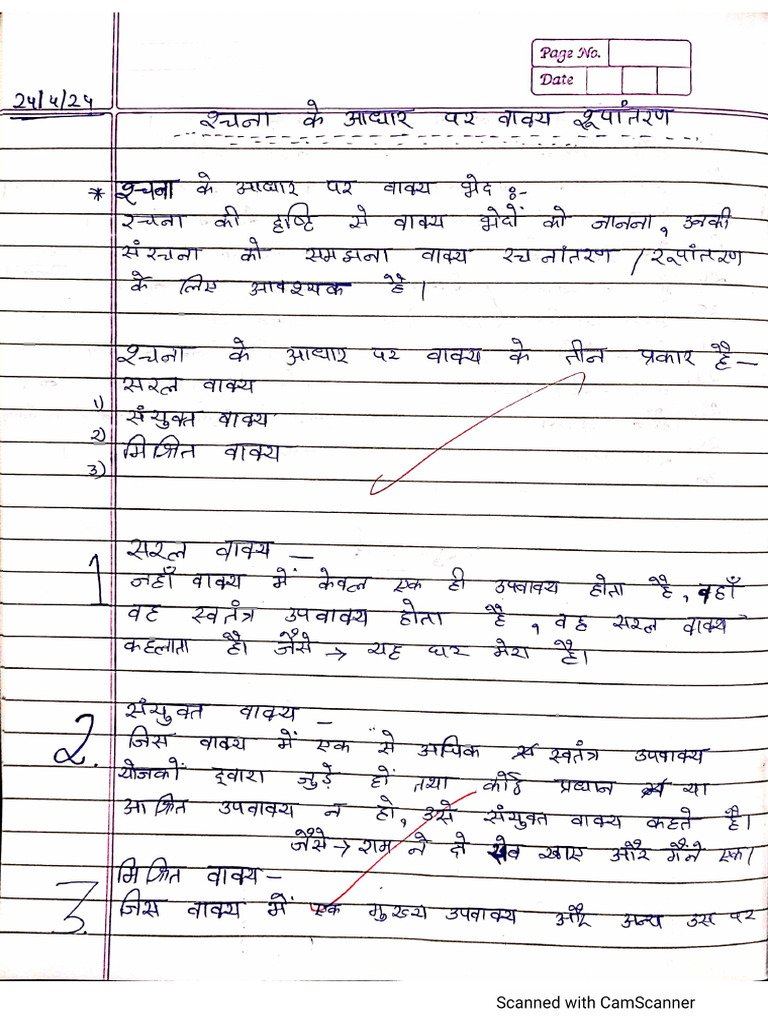 Page No.
Date
24/4/24
रचना के आधार पर वाक्य रूपांतरण
* रचना के आधार पर वाक्य भेद :-
रचना की दृष्टि से वाक्य भेदों को जानना, उनकी
संरचना को समझना वाक्य रचनांतरण / रूपांतरण
के लिए आवश्यक है।
रचना के आधार पर वाक्य के तीन प्रकार है —
सरल वाक्य
1) संयुक्त वाक्य
2) मिश्रित वाक्य
3)
सरल वाक्य —
1 जहाँ वाक्य में केवल एक ही उपवाक्य होता है, वहाँ
वह स्वतंत्र उपवाक्य होता है, वह सरल वाक्य
कहलाता है। जैसे → यह घर मेरा है।
संयुक्त वाक्य —
2. जिस वाक्य में एक से अधिक स्वतंत्र उपवाक्य
योजकों द्वारा जुड़े हों तथा कोई प्रधान या
आश्रित उपवाक्य न हो, उसे संयुक्त वाक्य कहते है।
जैसे → राम ने दो सेव खाए और मैंने एक।
मिश्रित वाक्य —
3. जिस वाक्य में एक मुख्य उपवाक्य और अन्य उस पर
Scanned with CamScanner